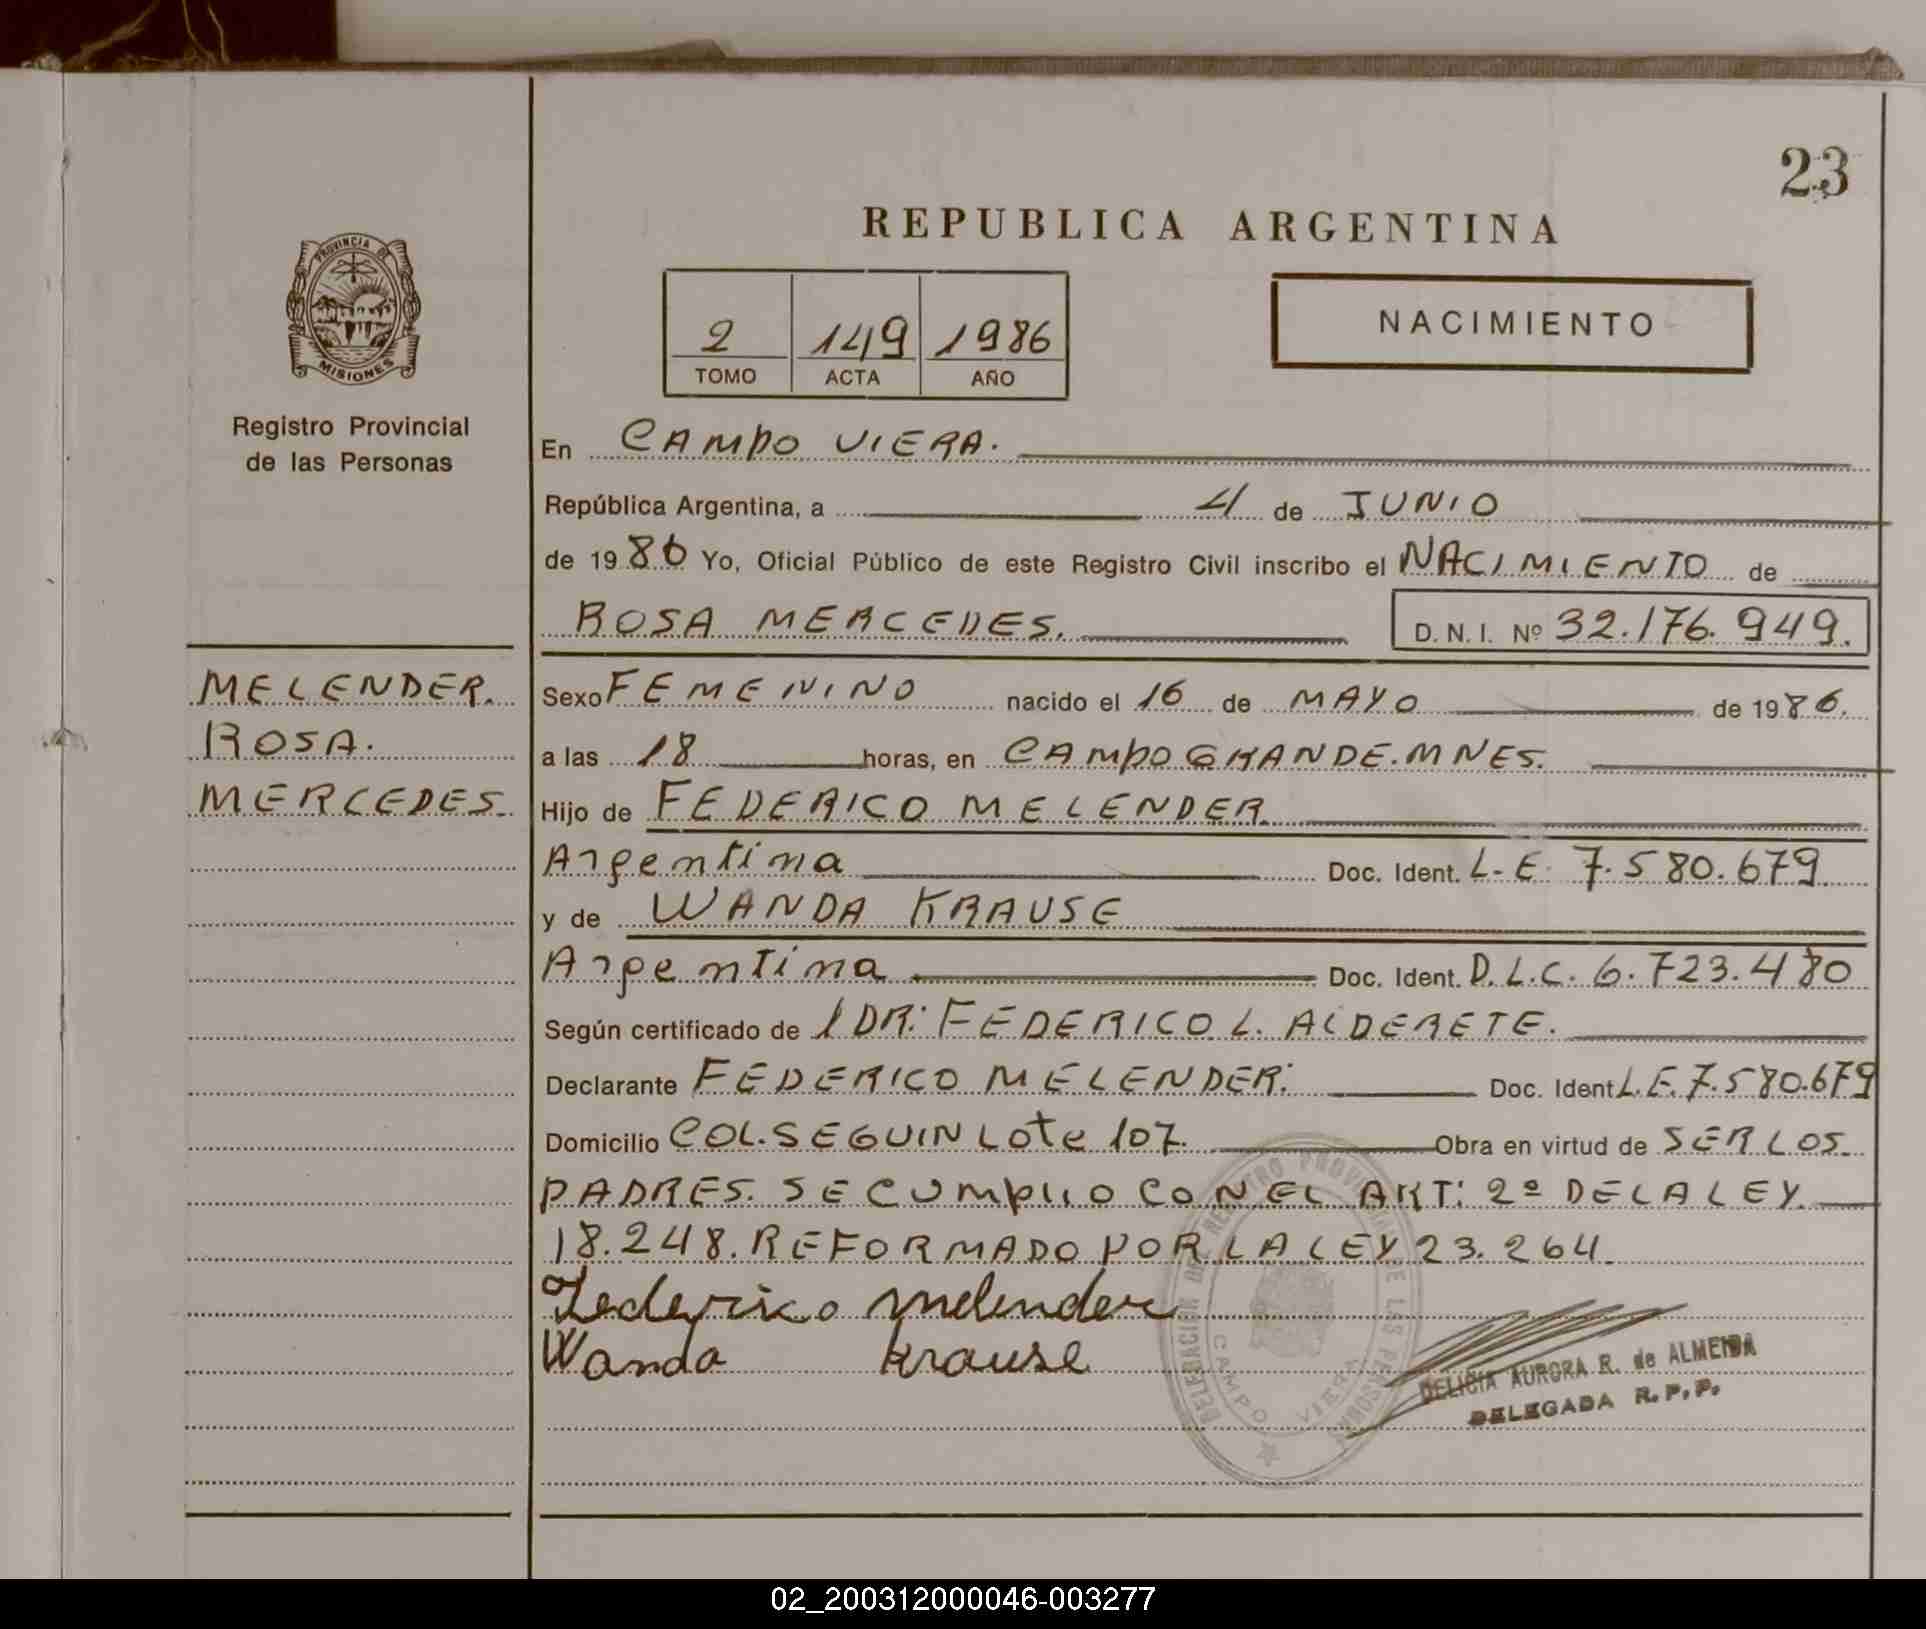 23
REPUBLICA ARGENTINA
PROVINCIA DE
MISIONES
2 149 1986
TOMO ACTA AÑO
NACIMIENTO
Registro Provincial
de las Personas
En CAMPO VIERA.
República Argentina, a 4 de JUNIO
de 1986 Yo, Oficial Público de este Registro Civil inscribo el NACIMIENTO de
ROSA MERCEDES. D. N. I. Nº 32.176.949.
MELENDER.
ROSA.
MERCEDES.
Sexo FEMENINO nacido el 16 de MAYO de 1986.
a las 18 horas, en CAMPO GRANDE. MNES.
Hijo de FEDERICO MELENDER.
Argentina Doc. Ident. L.E. 7.580.679
y de WANDA KRAUSE
Argentina Doc. Ident. D.L.C. 6.723.480
Según certificado de DR: FEDERICO L. ALDERETE.
Declarante FEDERICO MELENDER: Doc. Ident L.E. 7.580.679
Domicilio COL. SEGUIN Lote 107. Obra en virtud de SER LOS
PADRES. SE CUMPLIO CON EL ART: 2º DE LA LEY.
18.248. REFORMADO POR LA LEY 23.264.
Federico Melender
Wanda Krause
DELEGACION DEL REGISTRO PROVINCIAL DE LAS PERSONAS
CAMPO VIERA
DELICIA AURORA R. de ALMEIDA
DELEGADA R. P. P.
02_200312000046-003277